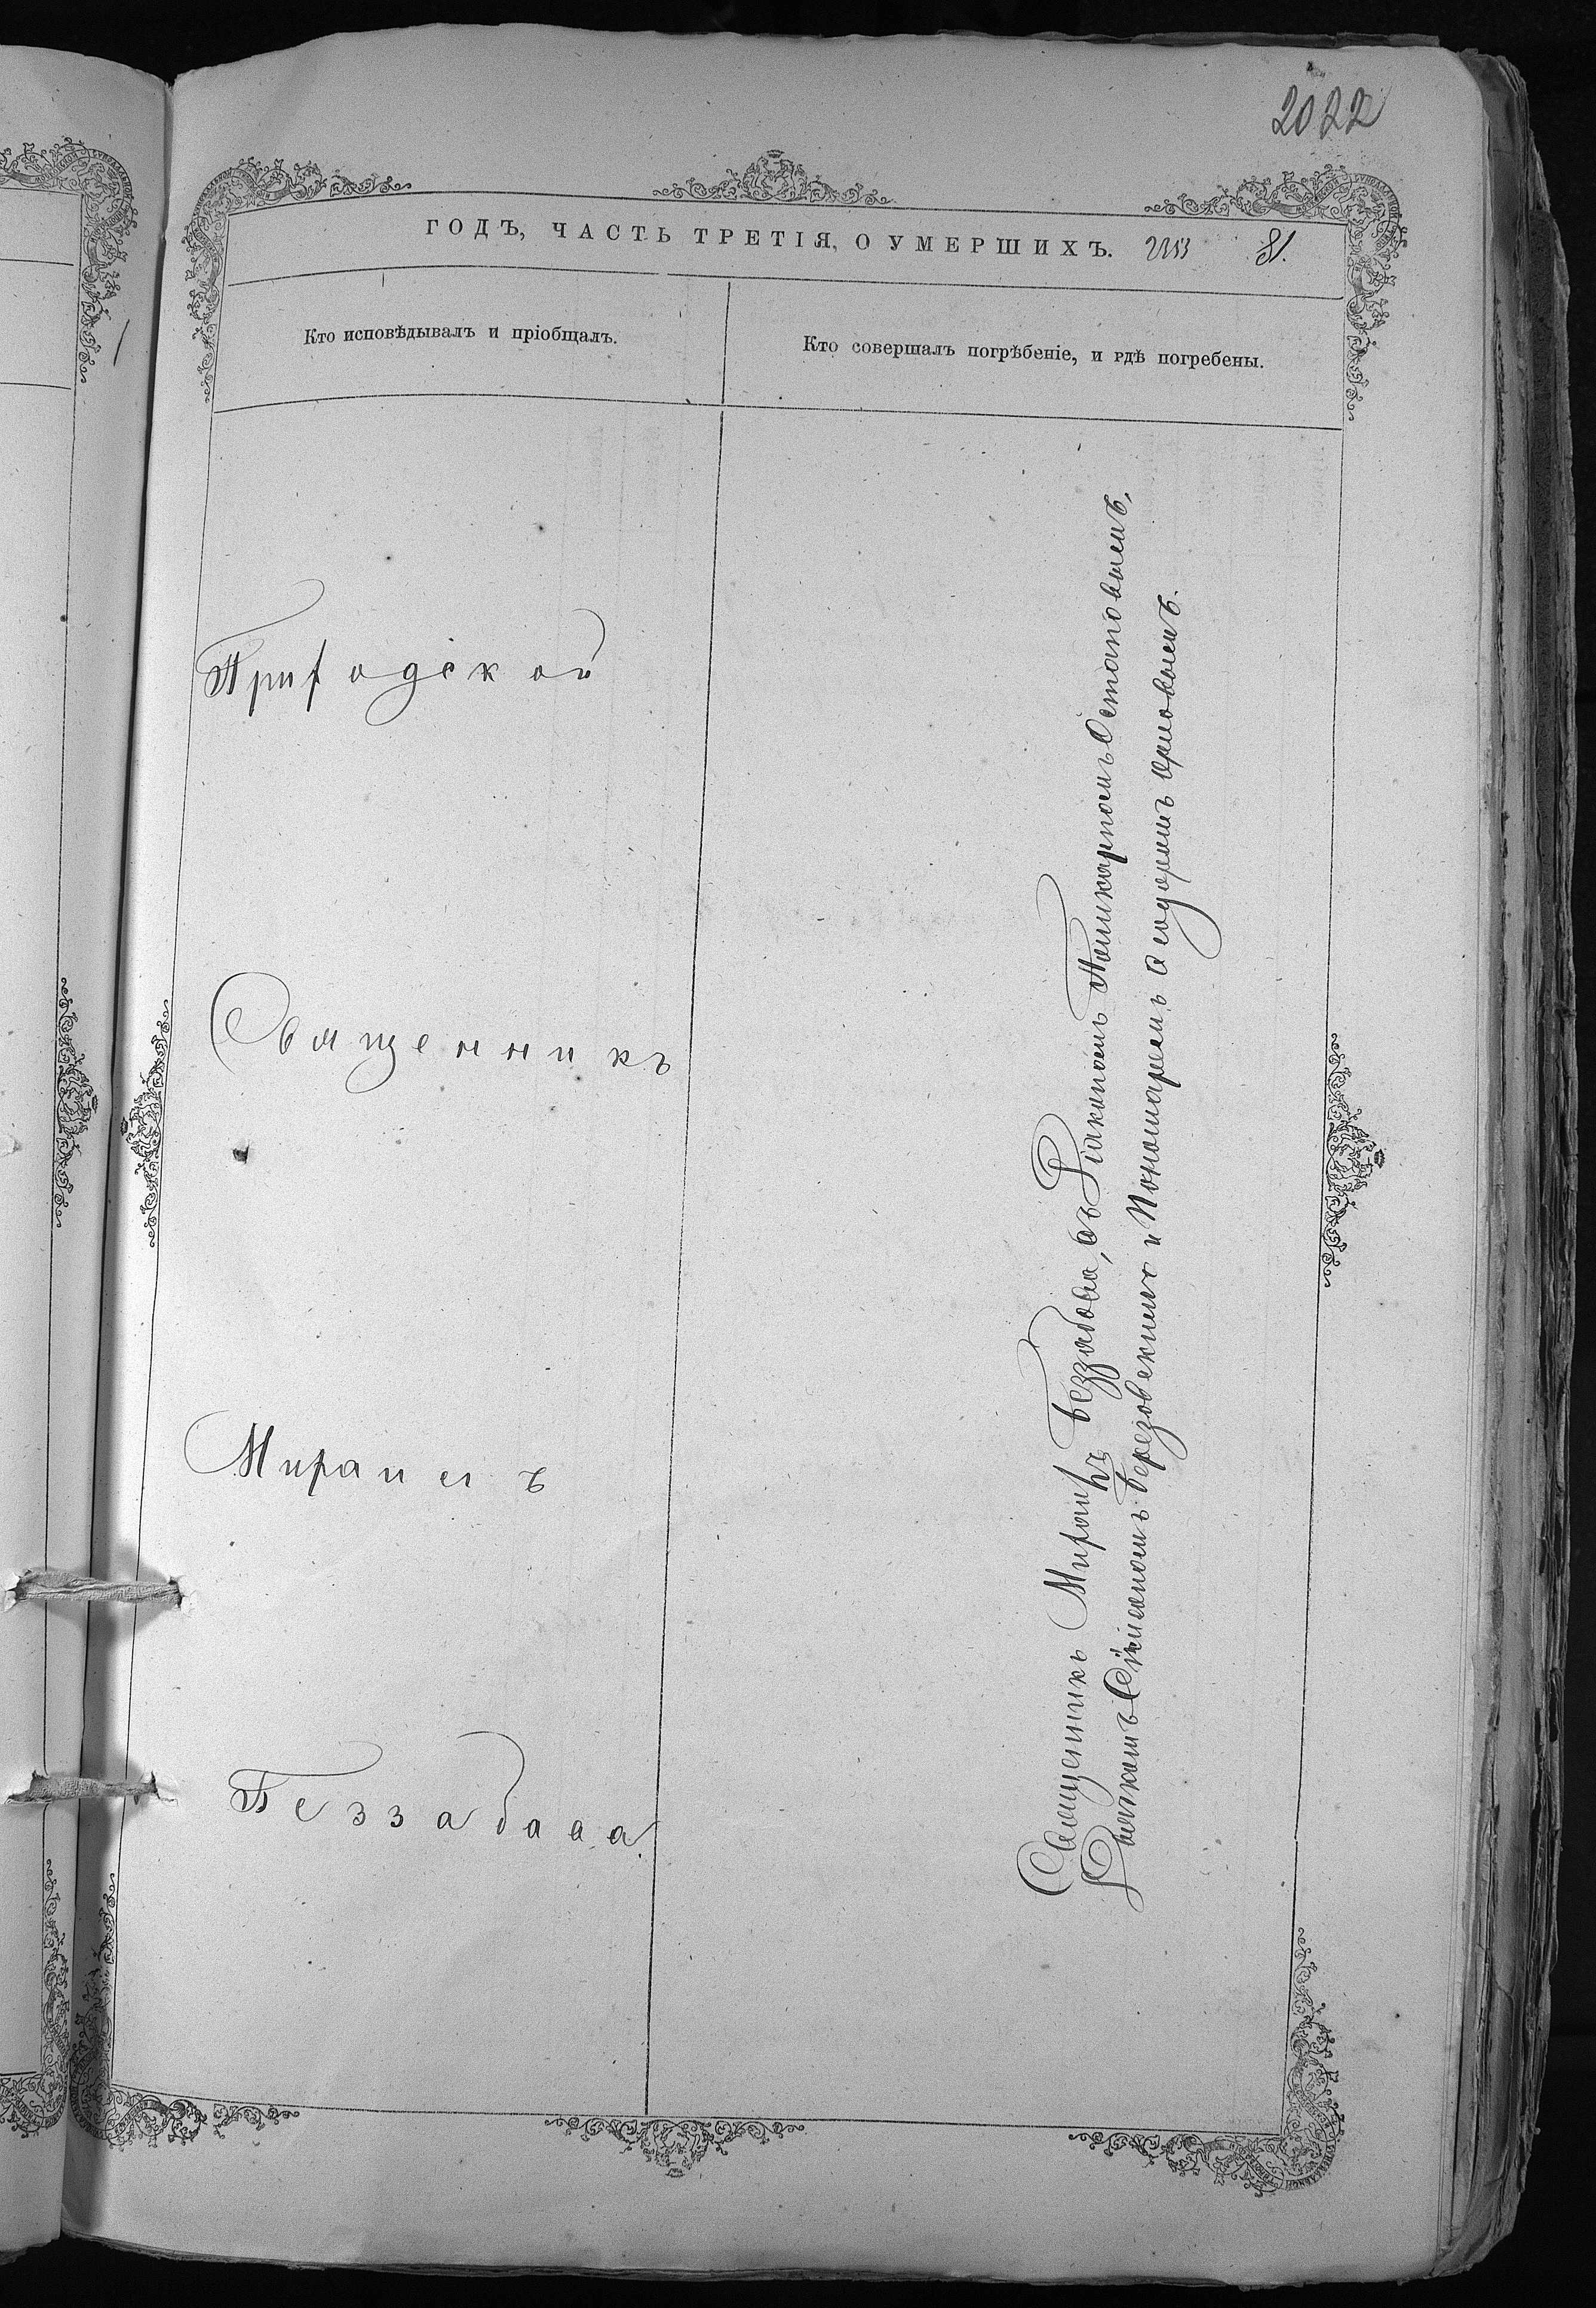 2022
ГОДЪ, ЧАСТЬ ТРЕТІЯ, О УМЕРШИХЪ. 2153 81.
Кто исповѣдывалъ и пріобщалъ.
Кто совершалъ погрѣбеніе, и гдѣ погребены.
Приходской
Священникъ
Михаилъ
Беззабава.
Священникъ Михаилъ Беззабава, съ Діакономъ Поликарпомъ Остаповымъ,
Дьячкомъ Симеономъ Березовскимъ и Пономаремъ Ѳеодоромъ Орловымъ.